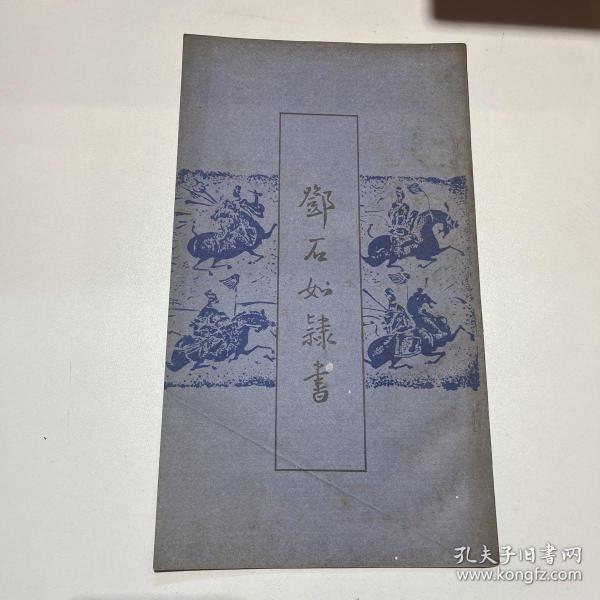 鄧石如隸書
孔夫子旧書网
www.kongfz.com